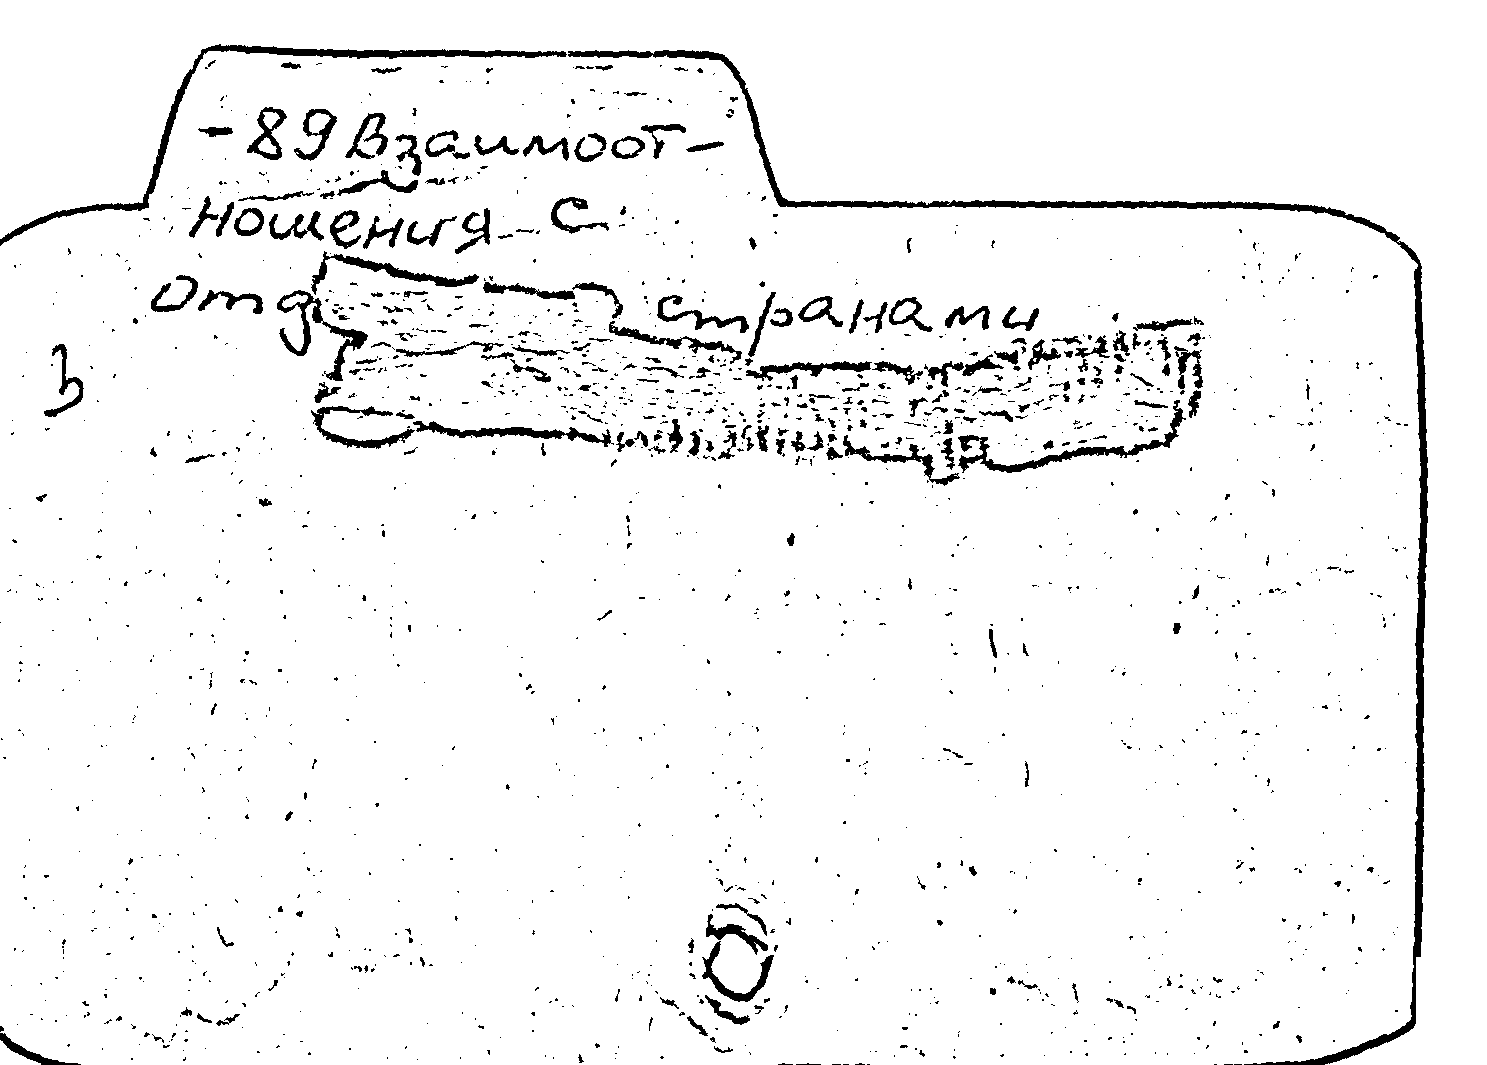 -89 Взаимоот-
ношения с
отд странами